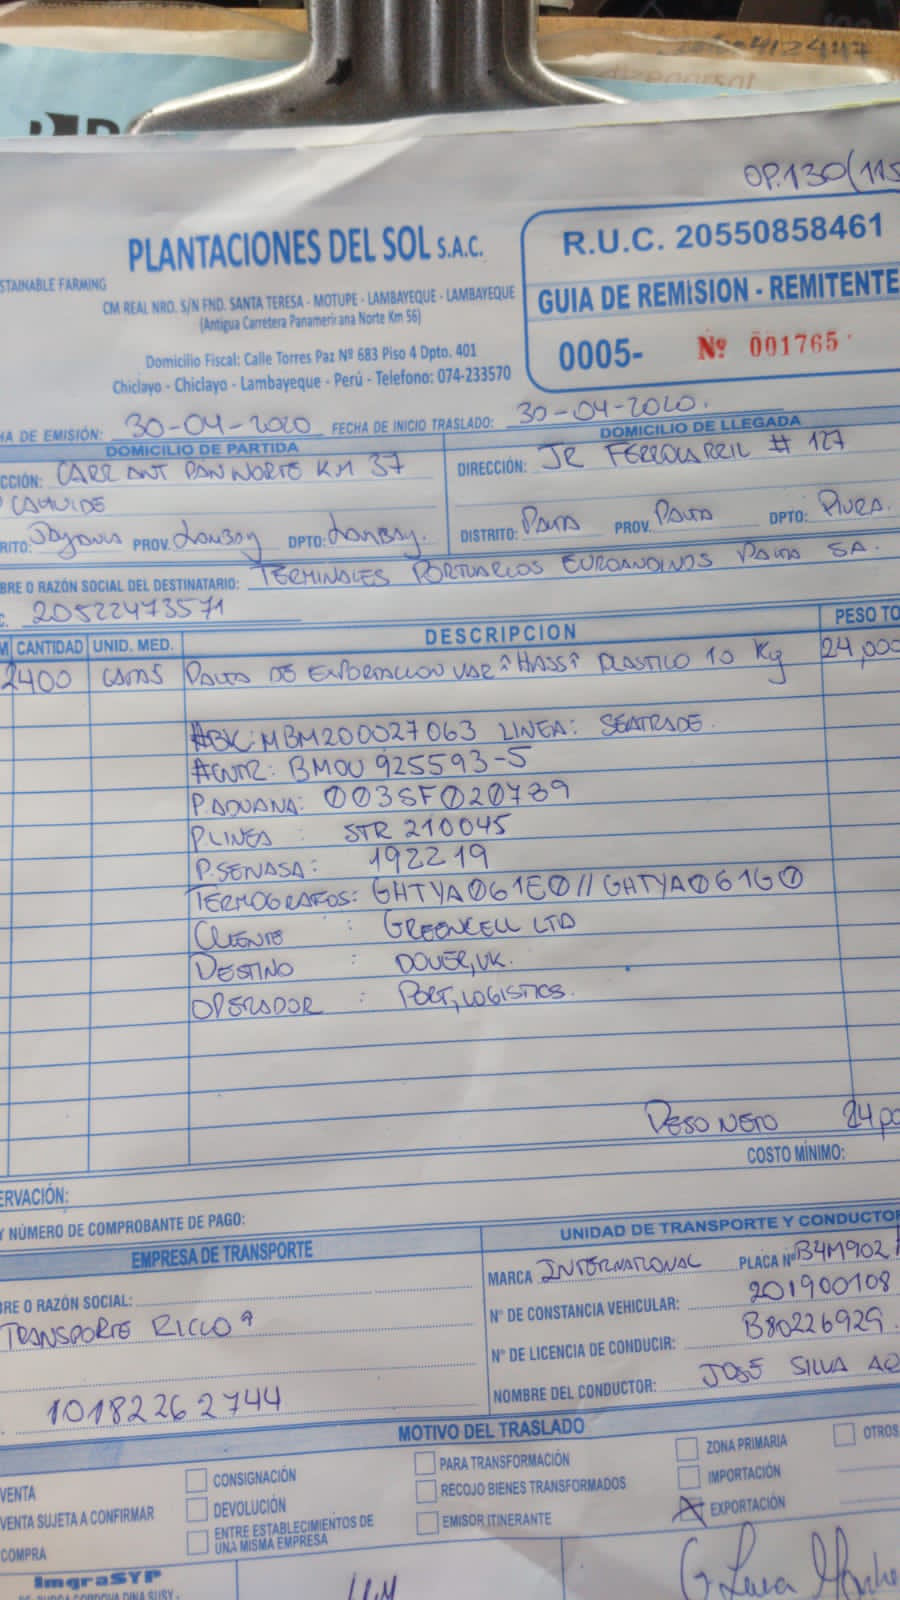 OP.130(115
PLANTACIONES DEL SOL S.A.C.
STAINABLE FARMING
CM REAL NRO. S/N FND. SANTA TERESA - MOTUPE - LAMBAYEQUE - LAMBAYEQUE
(Antigua Carretera Panamericana Norte Km 56)
Domicilio Fiscal: Calle Torres Paz Nº 683 Piso 4 Dpto. 401
Chiclayo - Chiclayo - Lambayeque - Perú - Telefono: 074-233570
R.U.C. 20550858461
GUIA DE REMISION - REMITENTE
0005- Nº 001765
HA DE EMISIÓN: 30-04-2020 FECHA DE INICIO TRASLADO: 30-04-2020.
DOMICILIO DE PARTIDA
CCIÓN: CARR ANT PAN NORTE KM 37
CAHUIDE
RITO: Jayanca PROV. Lambay DPTO: Lambay.
DOMICILIO DE LLEGADA
DIRECCIÓN: JR FERROCARRIL # 127
DISTRITO: PAITA PROV. PAITA DPTO: PIURA.
BRE O RAZÓN SOCIAL DEL DESTINATARIO: TERMINALES PORTUARIOS EUROANDINOS PAITA SA.
C. 20522473571
M CANTIDAD UNID. MED. DESCRIPCION PESO TO
2400 CAJAS PALTA DE EXPORTACION VAR "HASS" PLASTICO 10 Kg 24,000
#BK: MBM200027063 LINEA: SEATRADE.
#CNTR: BMOU 925593-5
P.ADUANA: 003SF020789
P.LINEA : STR 210045
P.SENASA: 192219
TERMOGRAFOS: GHTYA061E0//GHTYA061G0
CLIENTE : GREENCELL LTD
DESTINO : DOVER, UK.
OPERADOR : PORT, LOGISTICS.
PESO NETO 24,00
COSTO MÍNIMO:
ERVACIÓN:
Y NÚMERO DE COMPROBANTE DE PAGO:
EMPRESA DE TRANSPORTE
BRE O RAZÓN SOCIAL:
TRANSPORTE RICCO
10182262744
UNIDAD DE TRANSPORTE Y CONDUCTOR
MARCA INTERNATIONAL PLACA Nº B4M902
Nº DE CONSTANCIA VEHICULAR: 201900108
Nº DE LICENCIA DE CONDUCIR: B80226929.
NOMBRE DEL CONDUCTOR: JOSÉ SILVA
MOTIVO DEL TRASLADO
VENTA
VENTA SUJETA A CONFIRMAR
COMPRA
CONSIGNACIÓN
DEVOLUCIÓN
ENTRE ESTABLECIMIENTOS DE
UNA MISMA EMPRESA
PARA TRANSFORMACIÓN
RECOJO BIENES TRANSFORMADOS
EMISOR ITINERANTE
ZONA PRIMARIA
IMPORTACIÓN
EXPORTACIÓN
OTROS
ImgraSYP